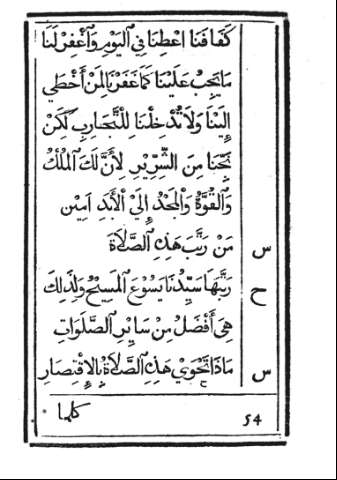 كَفَافَنَا اعْطِنَا فِي اليَوْمِ وَاَغْفِرْ لَنَا
مَا يَجِبُ عَلَيْنَا كَمَا غَفَرْنَا لِمَنْ أَخْطَي
إِلَيْنَا وَلَا تُدْخِلْنَا لِلتَّجَارِبِ لَكِنْ
نَجِّنَا مِنَ الشِّرِّيْرِ لِأَنَّ لَكَ المُلْكُ
وَالقُوَّةُ وَالمَجْدُ إِلَيْ الأَبَدِ اَمِيْن
س مَنْ رَتَّبَ هَذِهِ الصَّلَاةَ
ح رَتَّبَهَا سَيِّدُنَا يَسُوْعَ المَسِيْحُ وَلِذَلِكَ
هِيَ أَفْضَلُ مِنْ سَايِرِ الصَّلَوَاتِ
س مَاذَا تَحْوِيْ هَذِهِ الصَّلَاةُ بِالإِقْتِصَارِ
كلما
54